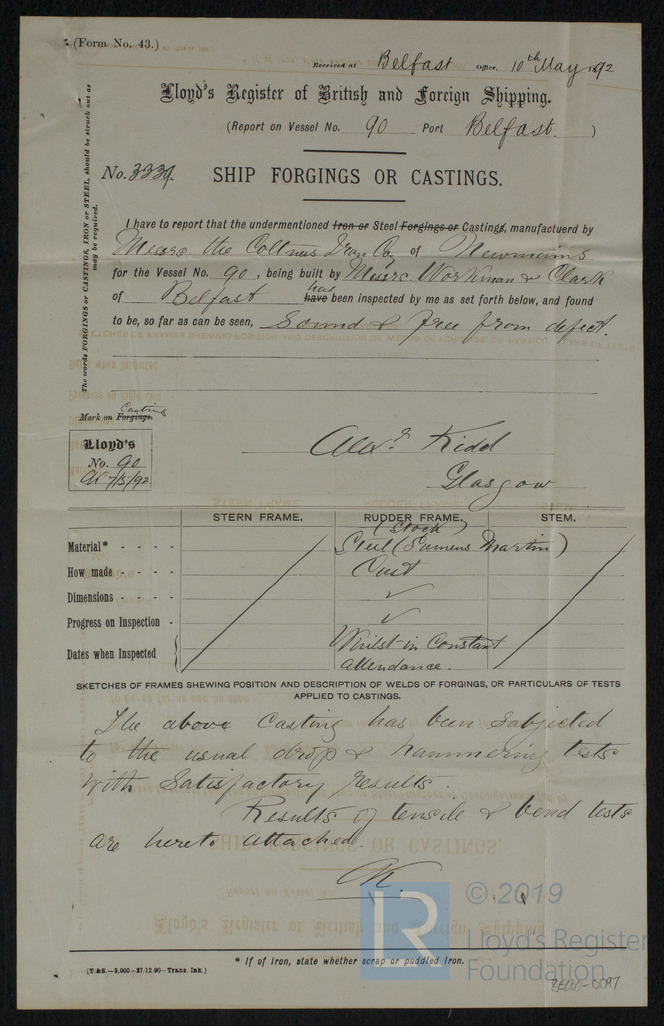 (Form No. 43.)
Received at Belfast Office, 10th May 1892
Lloyd's Register of British and Foreign Shipping.
(Report on Vessel No. 90 Port Belfast.)
No. 3339. SHIP FORGINGS OR CASTINGS.
The words FORGINGS or CASTINGS, IRON or STEEL, should be struck out as
may be required.
I have to report that the undermentioned Iron or Steel Forgings or Castings, manufactuerd by
Messrs the Coltness Iron Coy of Newmains
for the Vessel No. 90, being built by Messrs Workman & Clark
of Belfast have has been inspected by me as set forth below, and found
to be, so far as can be seen, Sound & free from defect.
Mark on Forgings. Casting
Lloyd's
No. 90
AK 7/5/92
Alexr Kidd
Glasgow
STERN FRAME. RUDDER FRAME. (Stock) STEM.
Material* - - - - Steel (Siemens Martin)
How made - - - - Cast
Dimensions - - - - ✓
Progress on Inspection - ✓
Dates when Inspected Whilst in Constant
attendance.
SKETCHES OF FRAMES SHEWING POSITION AND DESCRIPTION OF WELDS OF FORGINGS, OR PARTICULARS OF TESTS
APPLIED TO CASTINGS.
The above Casting has been Subjected
to the usual drop & hammering tests
with Satisfactory results.
Results of tensile & bend tests
are hereto attached.
AK.
* If of Iron, state whether scrap or puddled Iron.
[T.&S.—2,000—27.12.90—Trans. Ink.]
LR © 2019
Lloyd's Register
Foundation